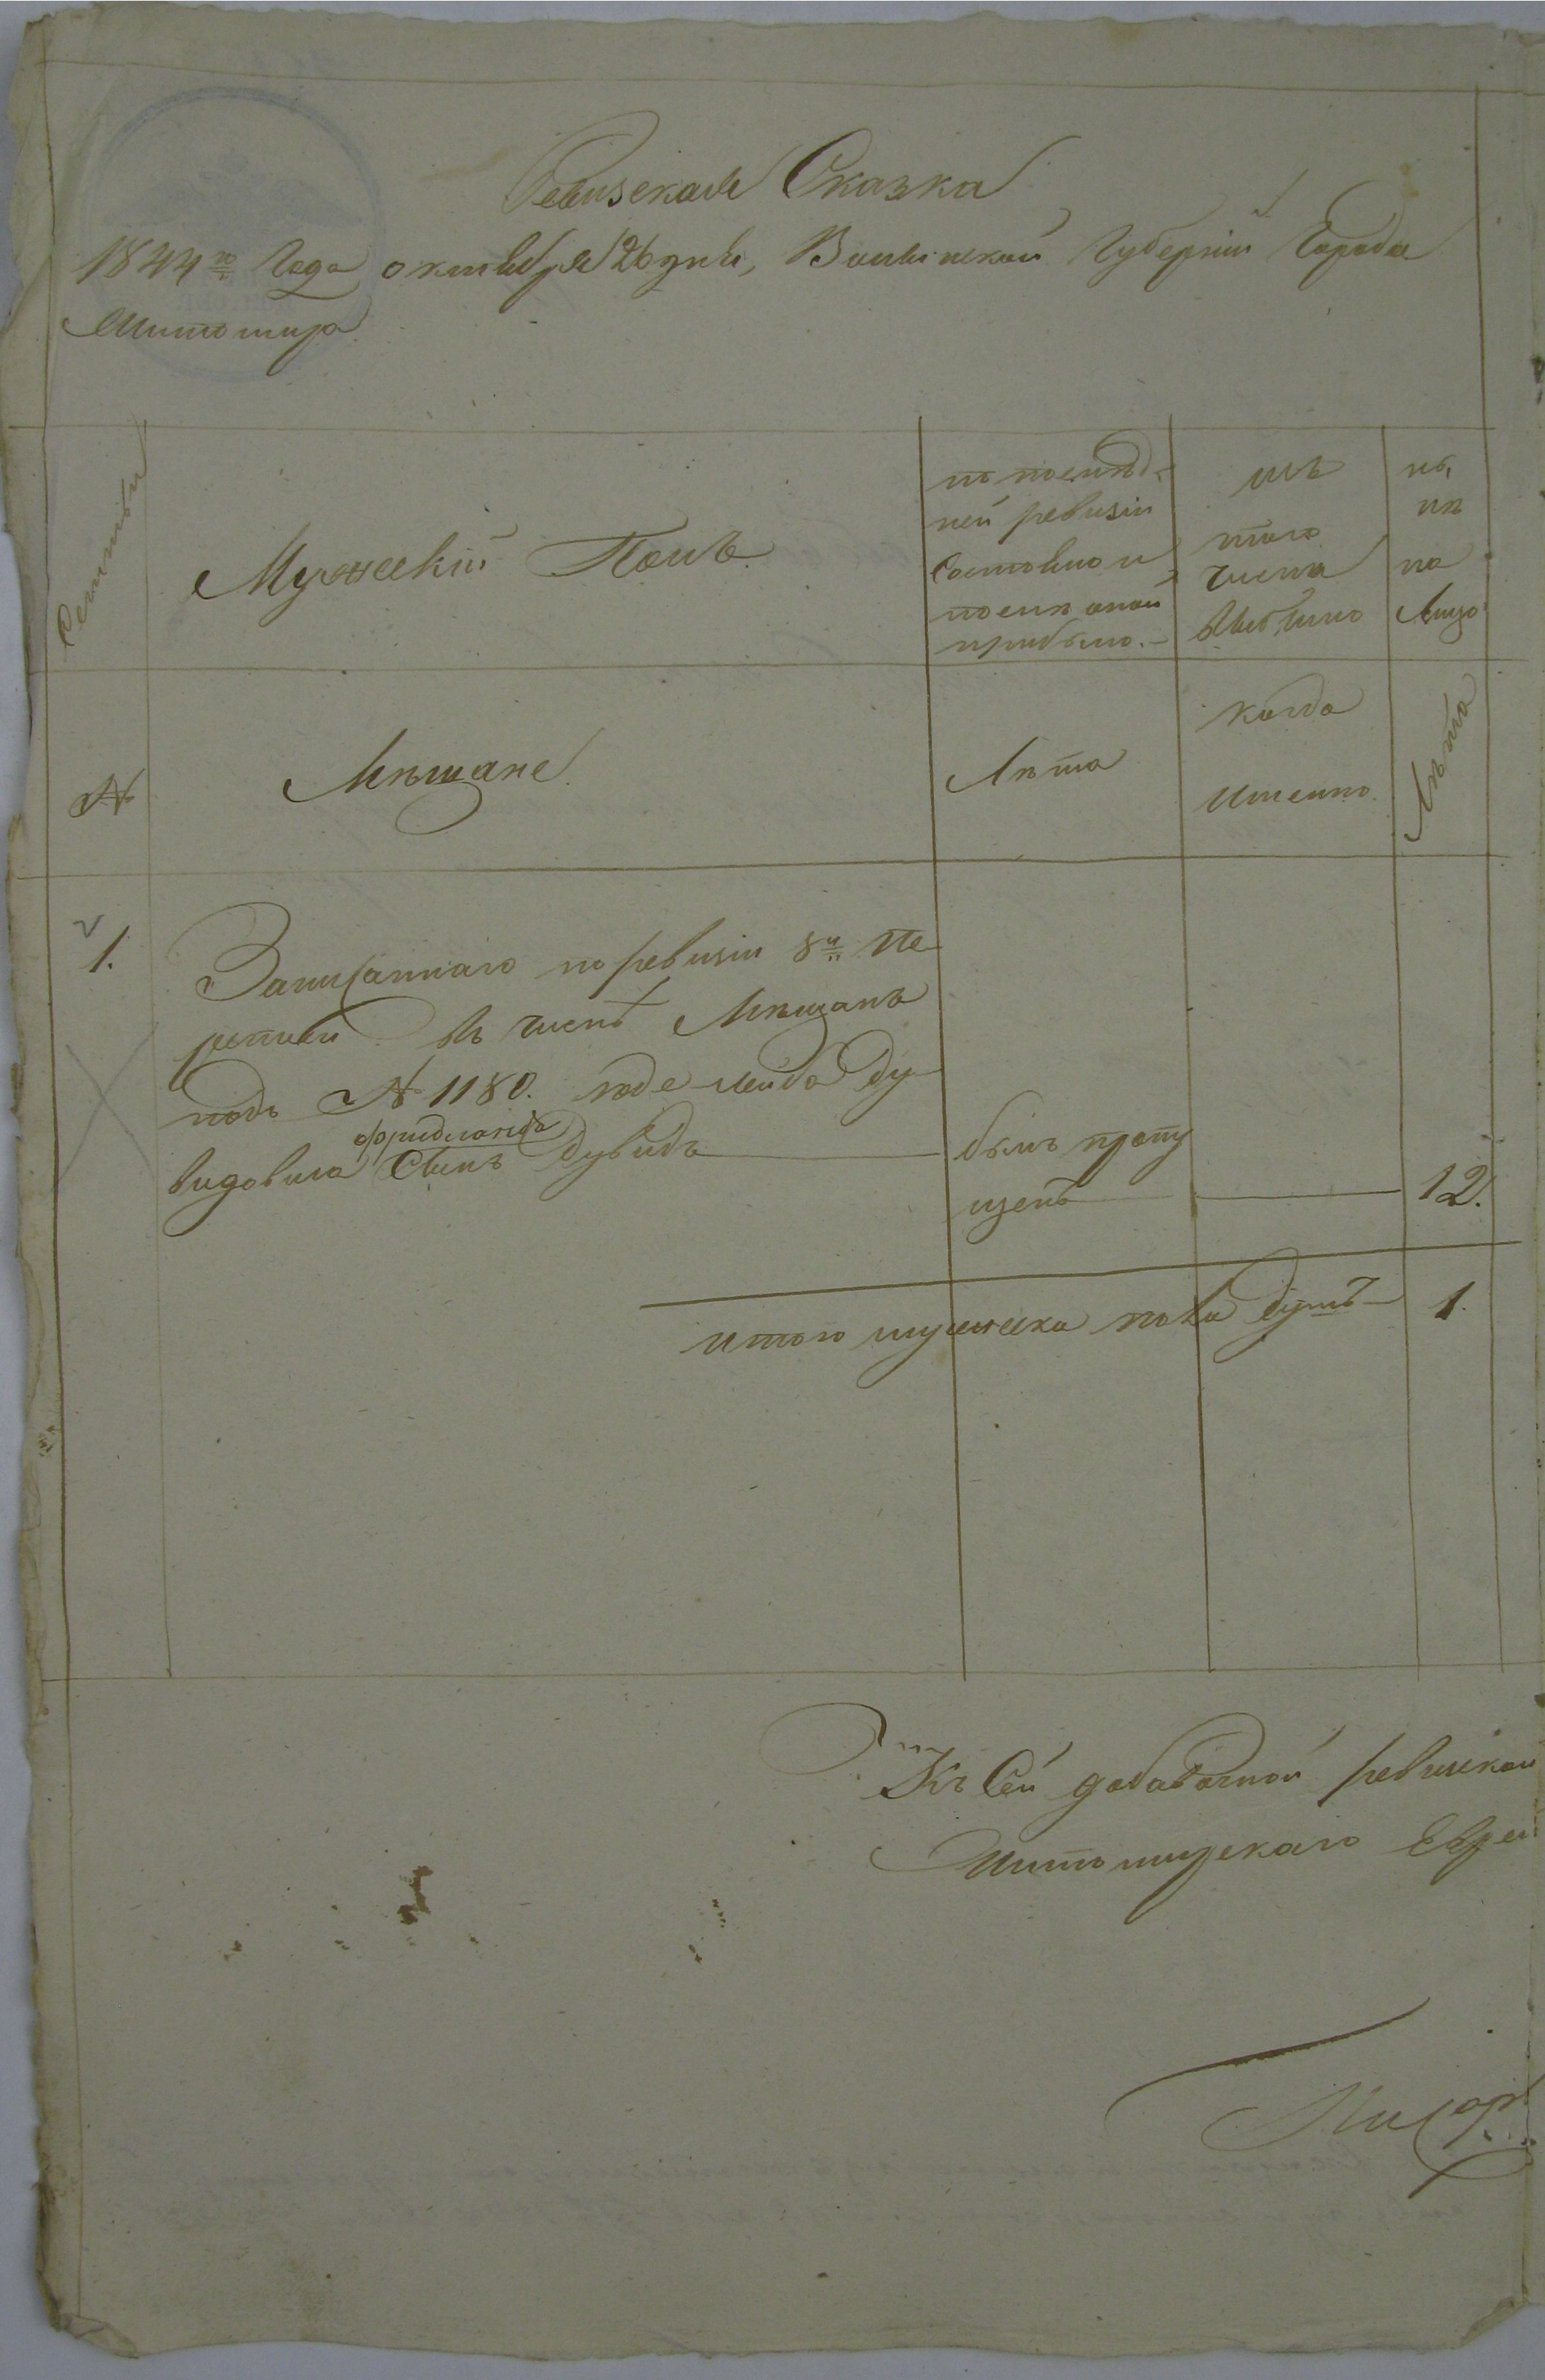 Ревизская Сказка
1844го Года октября 26 дня, Волынской Губернiи Города
Житомира
Семьи
Мужескiй Полъ
по послѣд-
ней ревизiи
состояло и
послѣ оной
прибыло.
изъ
того
числа
выбыло
ны,
нѣ
на
лицо
№
Мѣщане
Лѣта
когда
именно
Лѣта
1.
Записаннаго по ревизiи 8й пе
реписи въ числѣ Мѣщанъ
подъ № 1180. Лейба Ду
Фридманъ
видовича Сынъ Дувидъ
былъ пропу
щенъ
12.
итого мужеска пола душъ
1.
Къ Сей добавочной ревизкой
Житомирскаго Евре
Писар